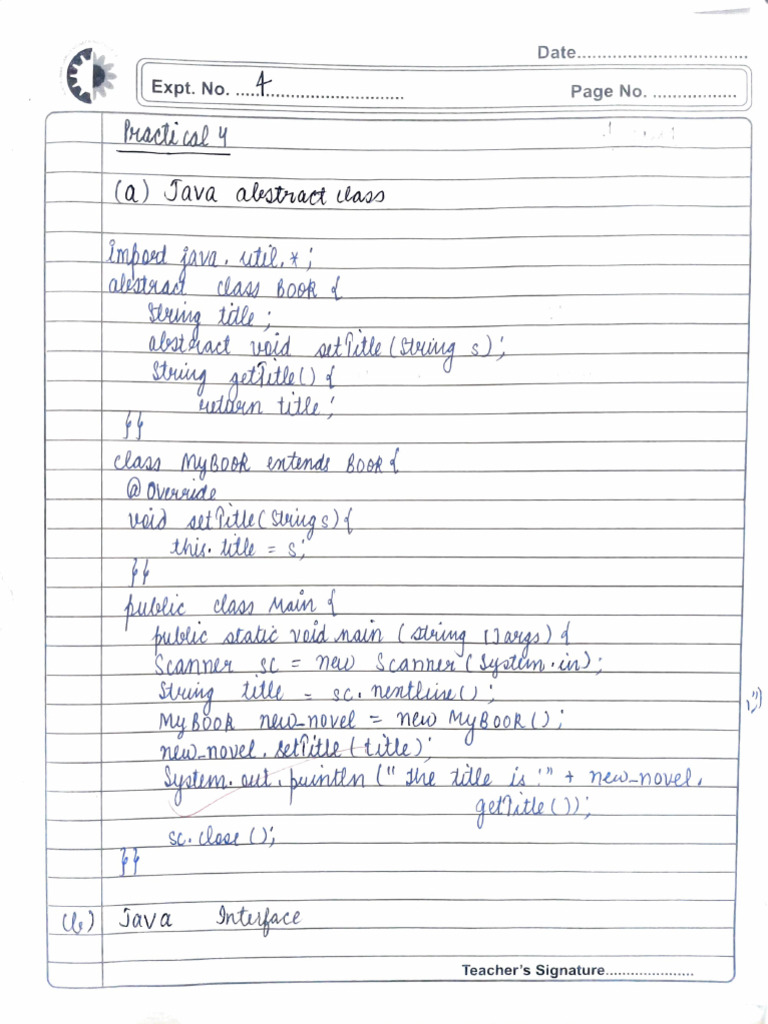 Date..................................
Expt. No. .....4............................
Page No. .................
Practical 4
(a) Java abstract class
import java.util.*;
abstract class BOOK {
String title;
abstract void setTitle(String s);
String getTitle() {
return title;
}}
class MyBOOK extends BOOK{
@Override
void setTitle(String s){
this.title = s;
}}
public class Main {
public static void main (String []args) {
Scanner sc = new Scanner(System.in);
String title = sc.nextLine();
MyBOOK new_novel = new MyBOOK();
new_novel.setTitle(title);
System.out.println("The title is:" + new_novel.
getTitle());
sc.close();
}}
(b) Java Interface
Teacher's Signature......................